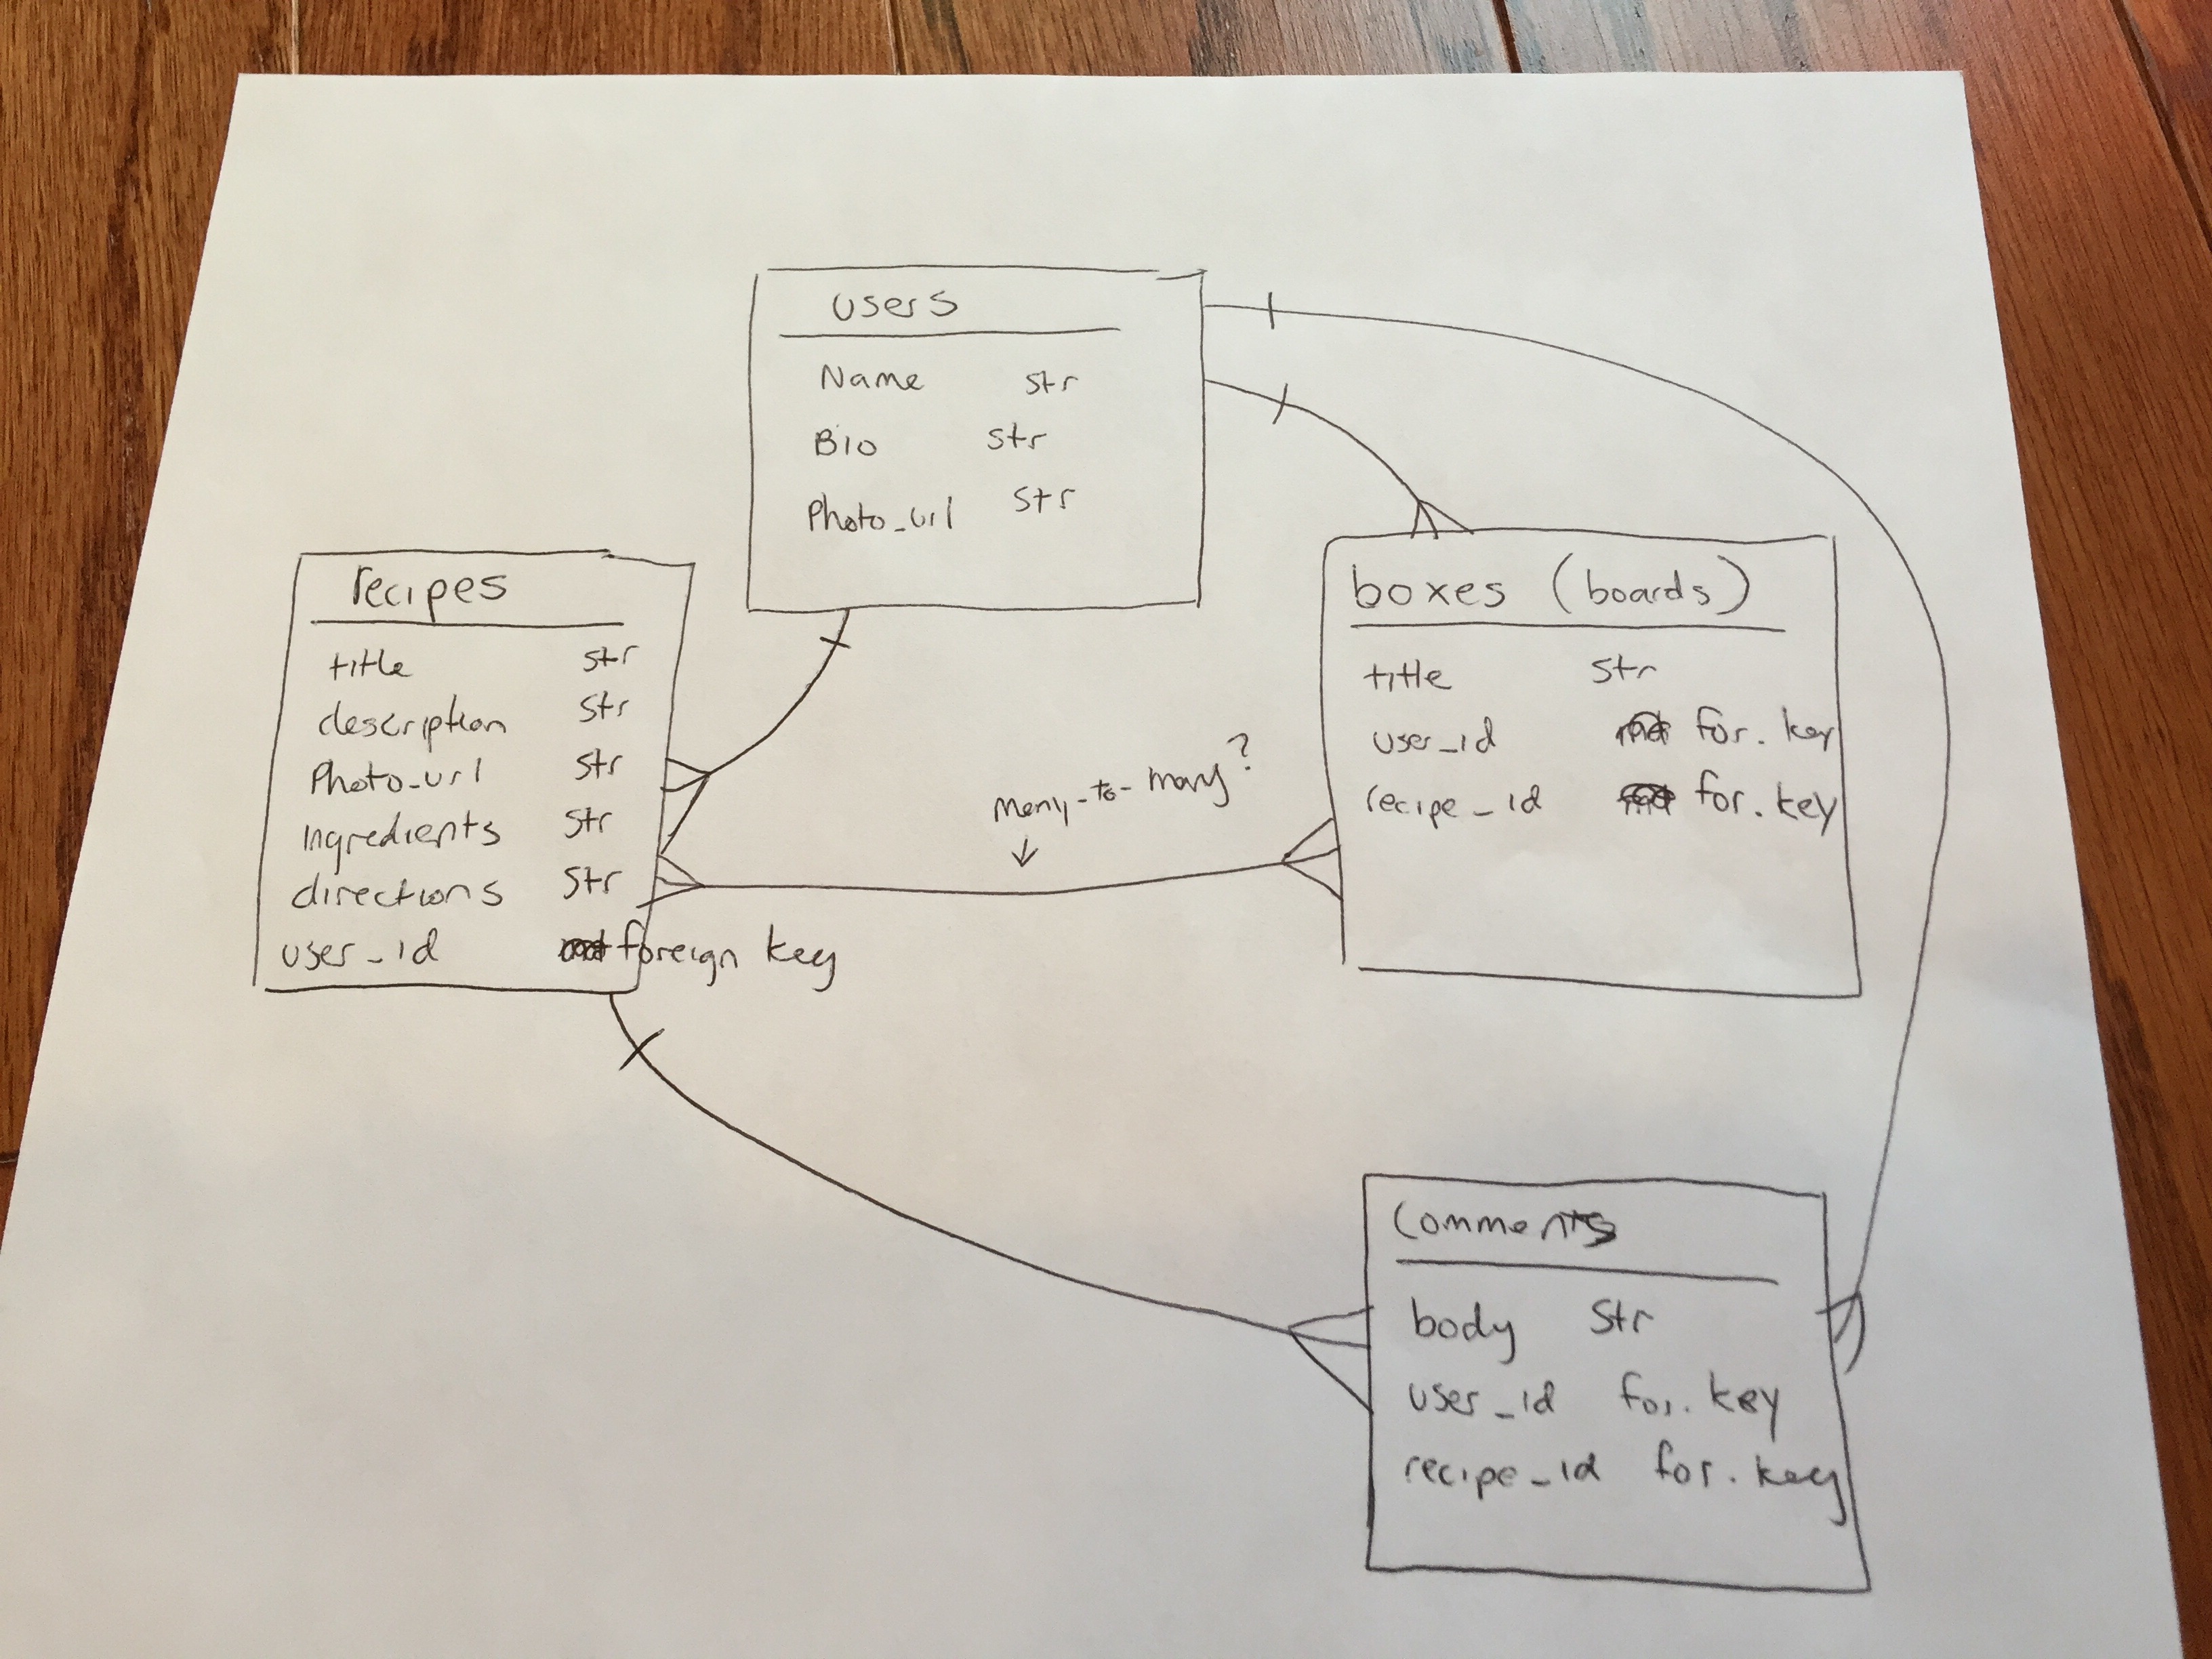 users
Name str
Bio str
Photo_url str
recipes
title str
description str
Photo_url str
Ingredients str
directions str
user_id foreign key
boxes (boards)
title str
user_id for. key
recipe_id for. key
many-to-many?
Comments
body Str
user_id for. key
recipe_id for. key